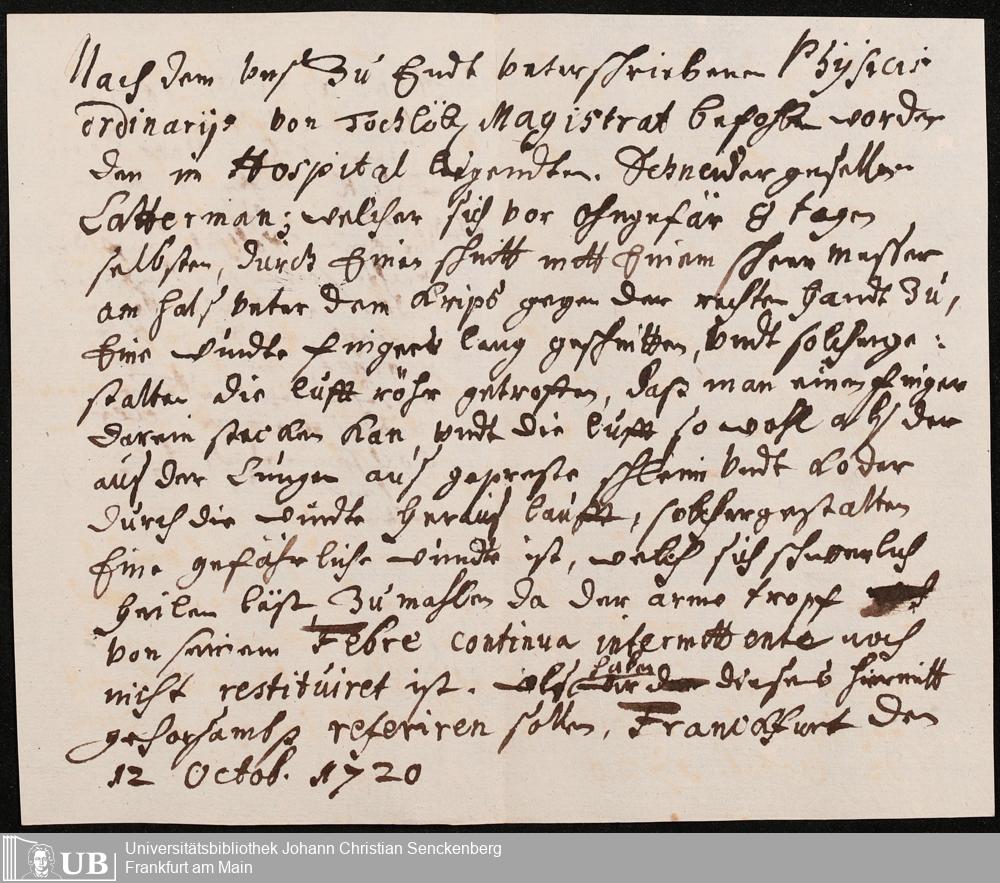 Nach dem unß Zu Endt unterschriebenen Physicis
ordinariis von Hochlöbl. Magistrat befohlen worden
den im Hospital liegendten Schneider gesellen
Latterman; welcher sich vor ohngefär 8 tagen
selbsten, durch Einen schnitt mitt Einem scheer messer
am halß unter dem Krips gegen der rechten handt Zu,
Eine wundte fingers lang geschnitten, undt solcherge:
stalten die lufft röhr getroffen, daß man einen finger
darein stecken kan, undt die lufft so wohl alß der
auß der Lungen auß gepreste schleim undt Koder
durch die wundte herauß laufft, solchergestalten
Eine gefährliche wundte ist, welche sich schwerlich
heilen läst, Zumahlen da der arme tropf
von seinem Febre continua intermittente noch
nicht restituiret ist. Alß haben wir dieses hiermitt
gehorsambst referiren sollen, Franckfurt den
12 Octob. 1720
UB
Universitätsbibliothek Johann Christian Senckenberg
Frankfurt am Main